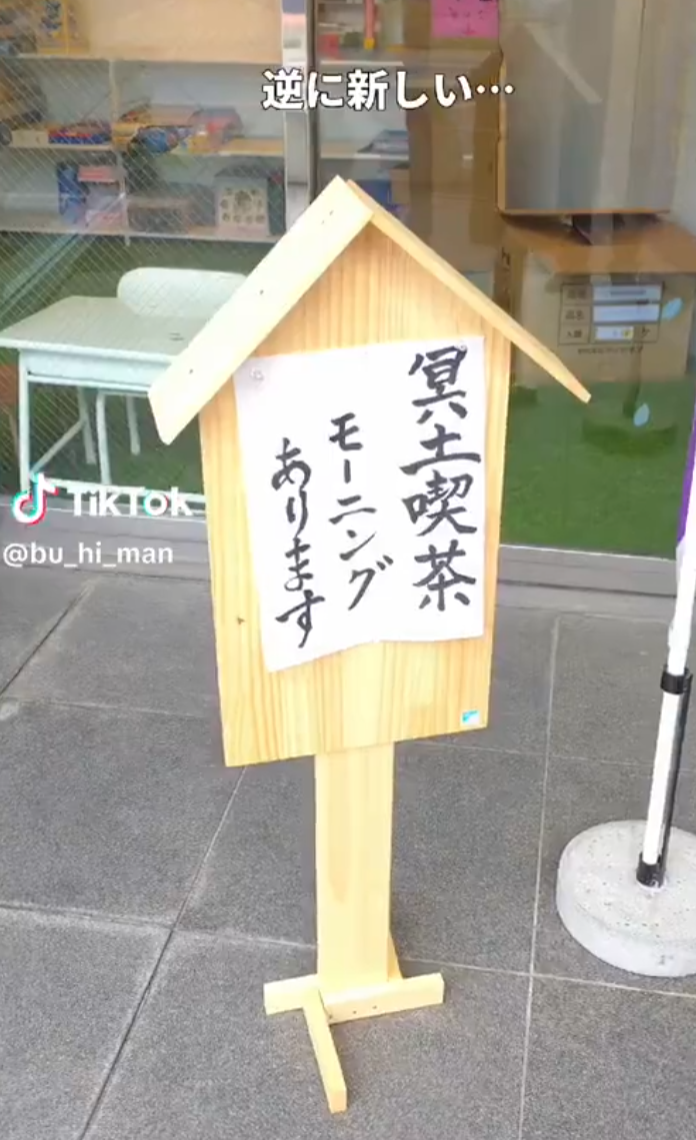 逆に新しい…
冥土喫茶
モーニング
あります
TikTok
@bu_hi_man